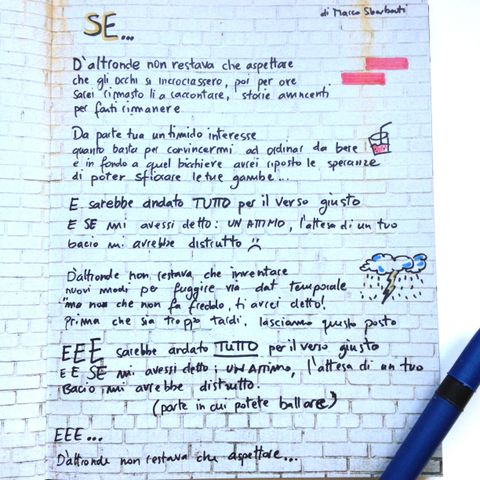 SE...
di Marco Sbarbati
D'altronde non restava che aspettare
che gli occhi si incrociassero, poi per ore
sarei rimasto lì a raccontare, storie avvincenti
per farti rimanere
Da parte tua un timido interesse
quanto basta per convincermi ad ordinar da bere
e in fondo a quel bicchiere avrei riposto le speranze
di poter sfiorare le tue gambe...
E sarebbe andato TUTTO per il verso giusto
E SE mi avessi detto: UN ATTIMO, l'attesa di un tuo
bacio mi avrebbe distrutto
D'altronde non restava che inventare
nuovi modi per fuggire via dal temporale
"ma no che non fa freddo, ti avrei detto!
Prima che sia troppo tardi, lasciamo questo posto
EEE sarebbe andato TUTTO per il verso giusto
E E SE mi avessi detto: UN ATTIMO, l'attesa di un tuo
Bacio mi avrebbe distrutto.
(parte in cui potete ballare)
EEE...
D'altronde non restava che aspettare...